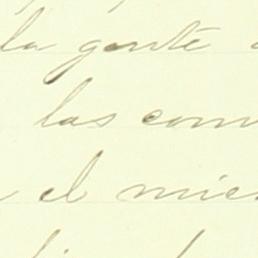 la gente
las com
el mie